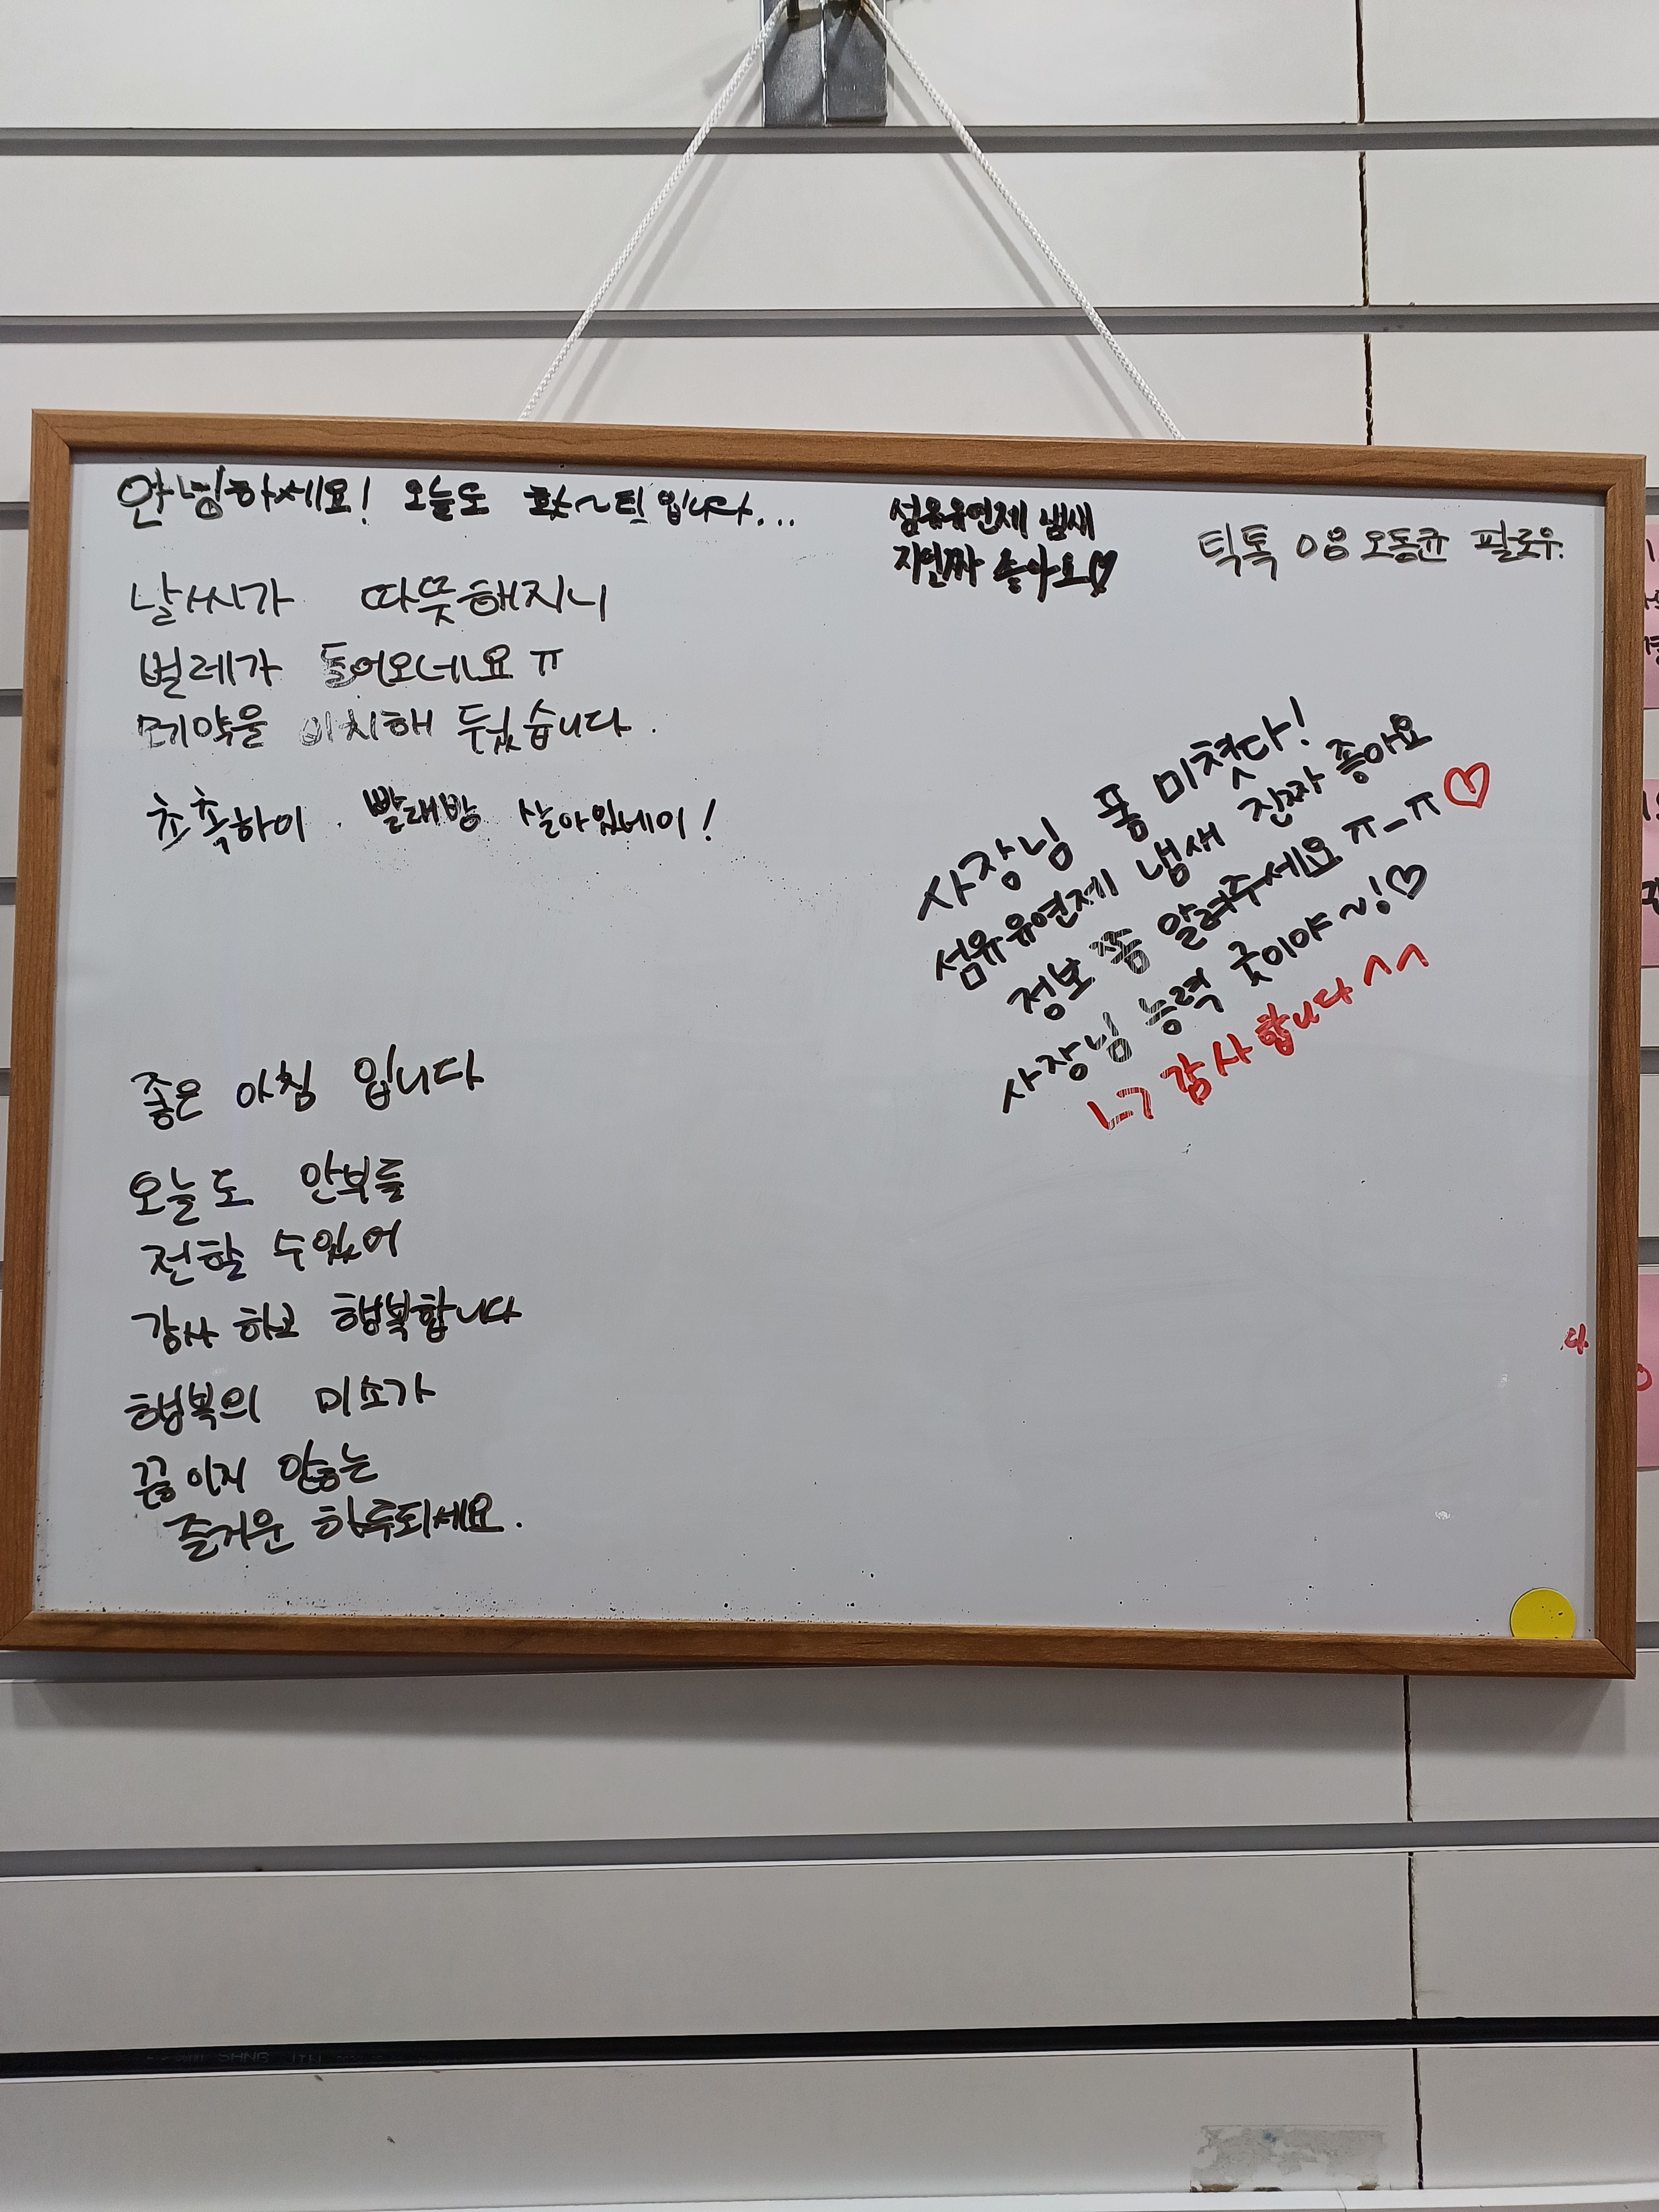 안녕하세요! 오늘도 홧~팅입니다...
날씨가 따뜻해지니
벌레가 들어오네요 ㅠ
비치해 두었습니다.
촉촉하이 빨래방 살아있네이!
좋은 아침 입니다
오늘도 안부를
전할 수있어
감사 하고 행복합니다
행복의 미소가
끊이지 않는
즐거운 하루되세요.
섬유유연제 냄새
지인짜 좋아요♡
틱톡 0용 오동균 팔로우.
사장님 폼 미쳣다!
섬유유연제 냄새 진짜 좋아요
정보 쫌 알려주세요 ㅠ_ㅠ ♡
사장님 능력 굿이야~!♡
ㄴㄱ 감사합니다 ^^
다.